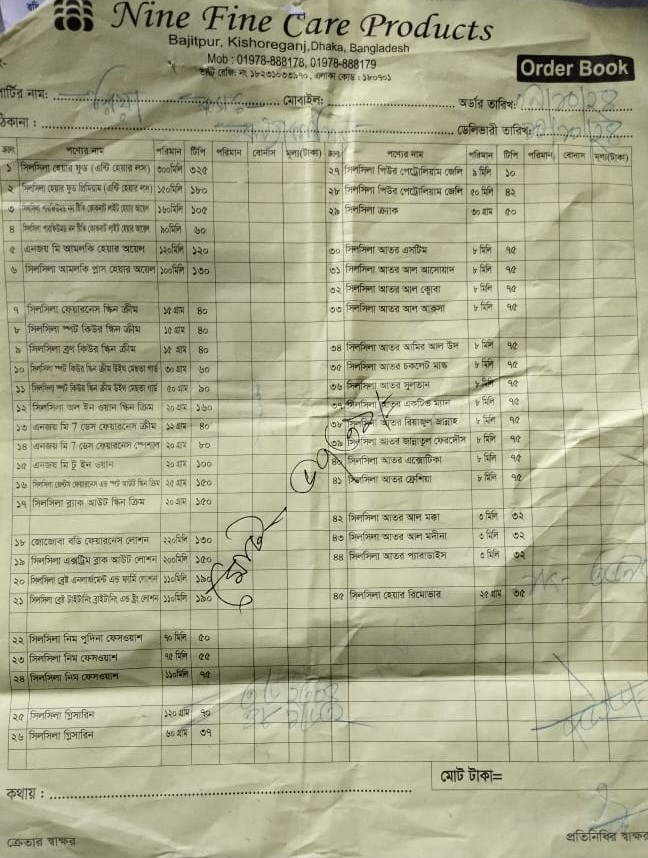 Nine Fine Care Products
Bajitpur, Kishoreganj, Dhaka, Bangladesh
Mob : 01978-888178, 01978-888179
Order Book
পার্টির নাম: মোবাইল: অর্ডার তারিখ:
ঠিকানা : ডেলিভারী তারিখ:
ক্রনং পণ্যের নাম পরিমান টিপি পরিমান বোনাস মূল্য(টাকা) ক্রনং পণ্যের নাম পরিমান টিপি পরিমান বোনাস মূল্য(টাকা)
১ সিলসিলা হেয়ার ফুড (এন্টি হেয়ার লস) ৩০০মিলি ৩২৫
২ সিলসিলা হেয়ার ফুড প্রিমিয়াম (এন্টি হেয়ার লস) ১৫০মিলি ১৮০
৩ ১৬০মিলি ১০৫
৪ ৯০মিলি ৬০
৫ এনজয় মি আমলকি হেয়ার অয়েল ১২০মিলি ১২০
৬ সিলসিলা আমলকি প্লাস হেয়ার অয়েল ১০০মিলি ১৩০
৭ সিলসিলা ফেয়ারনেস স্কিন ক্রীম ১৫ গ্রাম ৪০
৮ সিলসিলা স্পট কিউর স্কিন ক্রীম ১৫ গ্রাম ৪০
৯ সিলসিলা ব্রণ কিউর স্কিন ক্রীম ১৫ গ্রাম ৪০
১০ সিলসিলা স্পট কিউর স্কিন ক্রীম উইথ মেছতা গার্ড ৩০ গ্রাম ৬০
১১ সিলসিলা স্পট কিউর স্কিন ক্রীম উইথ মেছতা গার্ড ৫০ গ্রাম ৯০
১২ সিলসিলা অল ইন ওয়ান স্কিন ক্রিম ২০ গ্রাম ১৬০
১৩ এনজয় মি 7 ডেস ফেয়ারনেস ক্রীম ১২ গ্রাম ৪০
১৪ এনজয় মি 7 ডেস ফেয়ারনেস স্পেশাল ২০ গ্রাম ৮০
১৫ এনজয় মি টু ইন ওয়ান ২০ গ্রাম ১০০
১৬ সিলসিলা জেন্টস ফেয়ারনেস এন্ড স্পট আউট স্কিন ক্রিম ২৫ গ্রাম ১৫০
১৭ সিলসিলা ব্ল্যাক আউট স্কিন ক্রিম ২০ গ্রাম ১৫০
১৮ জোজোবা বডি ফেয়ারনেস লোশন ২২০মিলি ১৩০
১৯ সিলসিলা এক্সট্রিম ব্লাক আউট লোশন ২০০মিলি ১৫০
২০ সিলসিলা ব্রেষ্ট এনলার্জমেন্ট এন্ড ফার্মি লোশন ১১০মিলি ১৯০
২১ সিলসিলা ব্রেষ্ট টাইটনিং ব্রাইটনিং এন্ড লোশন ১১০মিলি ১৯০
২২ সিলসিলা নিম পুদিনা ফেসওয়াশ ৭০ মিলি ৫০
২৩ সিলসিলা নিম ফেসওয়াশ ৭৫ মিলি ৫৫
২৪ সিলসিলা নিম ফেসওয়াশ ১১০মিলি ৭৫
২৫ সিলসিলা গ্লিসারিন ১২০ গ্রাম ৭০
২৬ সিলসিলা গ্লিসারিন ৬০ গ্রাম ৩৭
২৭ সিলসিলা পিউর পেট্রোলিয়াম জেলি ৯ মিলি ১০
২৮ সিলসিলা পিউর পেট্রোলিয়াম জেলি ৫০ মিলি ৪২
২৯ সিলসিলা ক্র্যাক ৩০ গ্রাম ৫০
৩০ সিলসিলা আতর এসটিম ৮ মিলি ৭৫
৩১ সিলসিলা আতর আল আসোয়াদ ৮ মিলি ৭৫
৩২ সিলসিলা আতর আল ক্বোবা ৮ মিলি ৭৫
৩৩ সিলসিলা আতর আল আকসা ৮ মিলি ৭৫
৩৪ সিলসিলা আতর আমির আল উদ ৮ মিলি ৭৫
৩৫ সিলসিলা আতর চকলেট মাস্ক ৮ মিলি ৭৫
৩৬ সিলসিলা আতর সুলতান ৮ মিলি ৭৫
৩৭ সিলসিলা আতর একটিভ ম্যান ৮ মিলি ৭৫
৩৮ সিলসিলা আতর রিয়াদুল জান্নাহ ৮ মিলি ৭৫
৩৯ সিলসিলা আতর জান্নাতুল ফেরদৌস ৮ মিলি ৭৫
৪০ সিলসিলা আতর এক্সোটিকা ৮ মিলি ৭৫
৪১ সিলসিলা আতর ফ্রেশিয়া ৮ মিলি ৭৫
৪২ সিলসিলা আতর আল মক্কা ৩ মিলি ৩২
৪৩ সিলসিলা আতর আল মদীনা ৩ মিলি ৩২
৪৪ সিলসিলা আতর প্যারাডাইস ৩ মিলি ৩২
৪৫ সিলসিলা হেয়ার রিমোভার ২৫ গ্রাম ৩৫
মোট টাকা=
কথায় :
ক্রেতার স্বাক্ষর প্রতিনিধির স্বাক্ষর